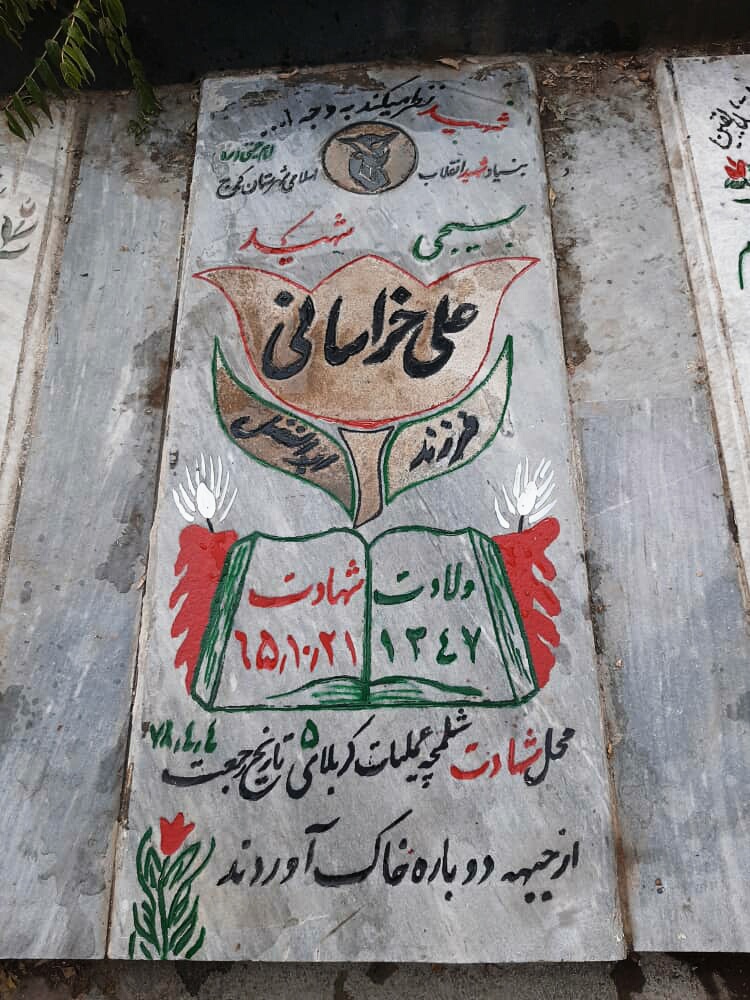 شهید نظر میکند به وجه ا...
امام خمینی (ره)
بنیاد شهید انقلاب اسلامی شهرستان کرج
بسیجی شهید
علی خراسانی
فرزند ابوالفضل
ولادت شهادت
۱۳۴۷ ۶۵,۱۰,۲۱
محل شهادت شلمچه عملیات کربلای ۵ تاریخ رجعت ۷۸,۴,۴
از جبهه دوباره خاک آوردند